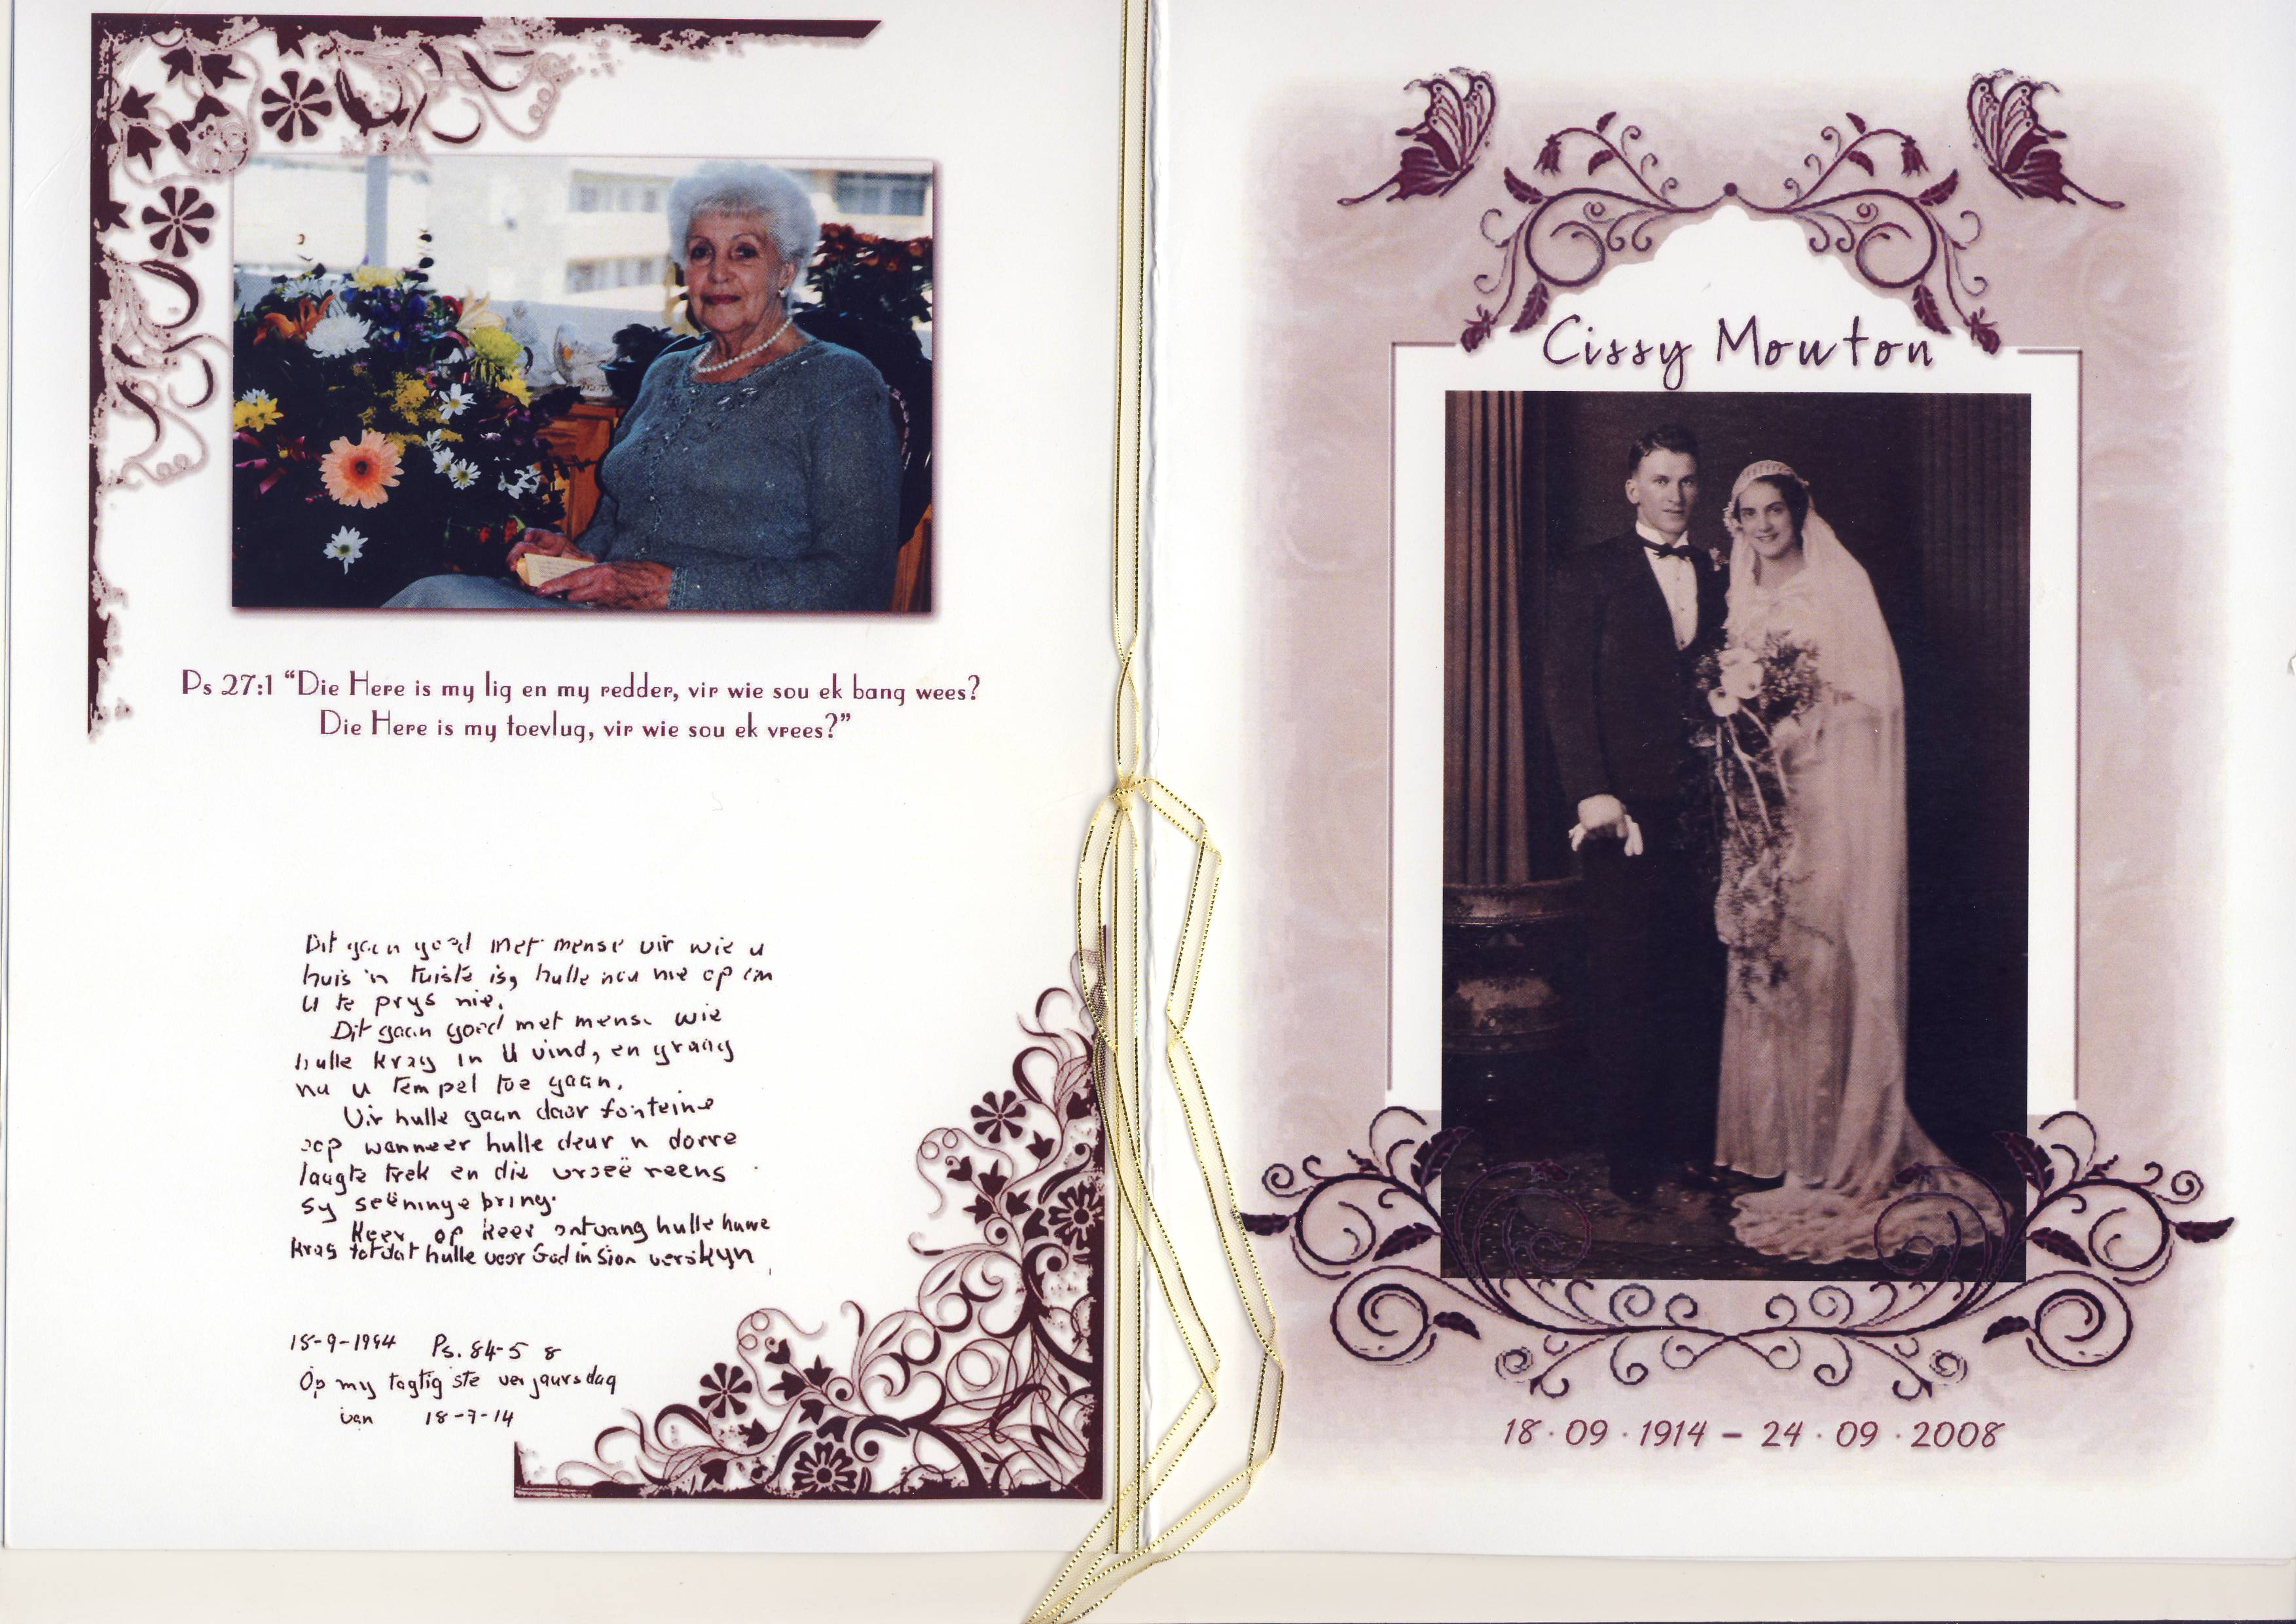 Ps 27:1 “Die Here is my lig en my redder, vir wie sou ek bang wees?
Die Here is my toevlug, vir wie sou ek vrees?”
Dit gaan goed met mense vir wie u
huis 'n tuiste is, hulle hou nie op om
U te prys nie.
Dit gaan goed met mense wie
hulle krag in U vind, en graag
na u tempel toe gaan.
Vir hulle gaan daar fonteine
oop wanneer hulle deur n dorre
laagte trek en die vroeë reens
sy seëninge bring.
Keer op keer ontvang hulle nuwe
krag totdat hulle voor God in Sion verskyn
18-9-1994 Ps. 84-5 8
Op my tagtigste verjaarsdag
van 18-9-14
Cissy Mouton
18·09·1914 – 24·09·2008